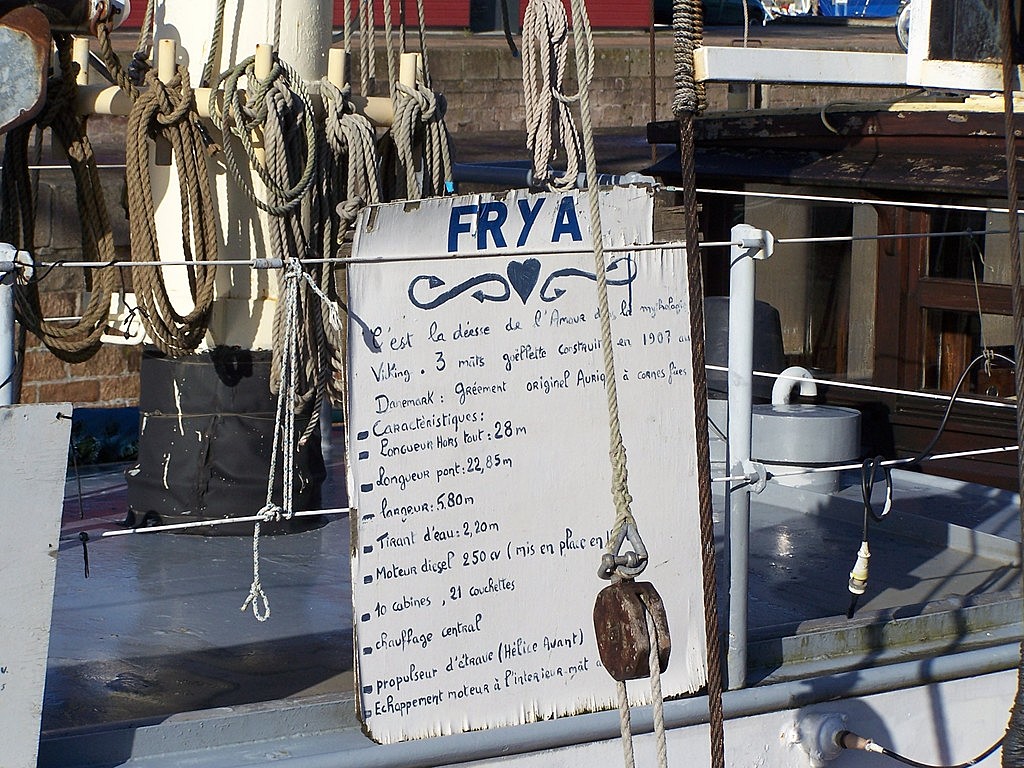 FRYA
C'est la déesse de l'Amour la mythologie
Viking. 3 mâts goëlette construit en 1907 au
Danemark: Gréement originel Auriq à cornes
Caractéristiques:
Longueur Hors tout: 28m
Longueur pont: 22,85m
largeur: 5.80m
Tirant d'eau: 2,20m
Moteur diesel 250 cv (mis en place en
10 cabines, 21 couchettes
chauffage central
propulseur d'étrave (Hélice Avant)
Echappement moteur à l'interieur mât